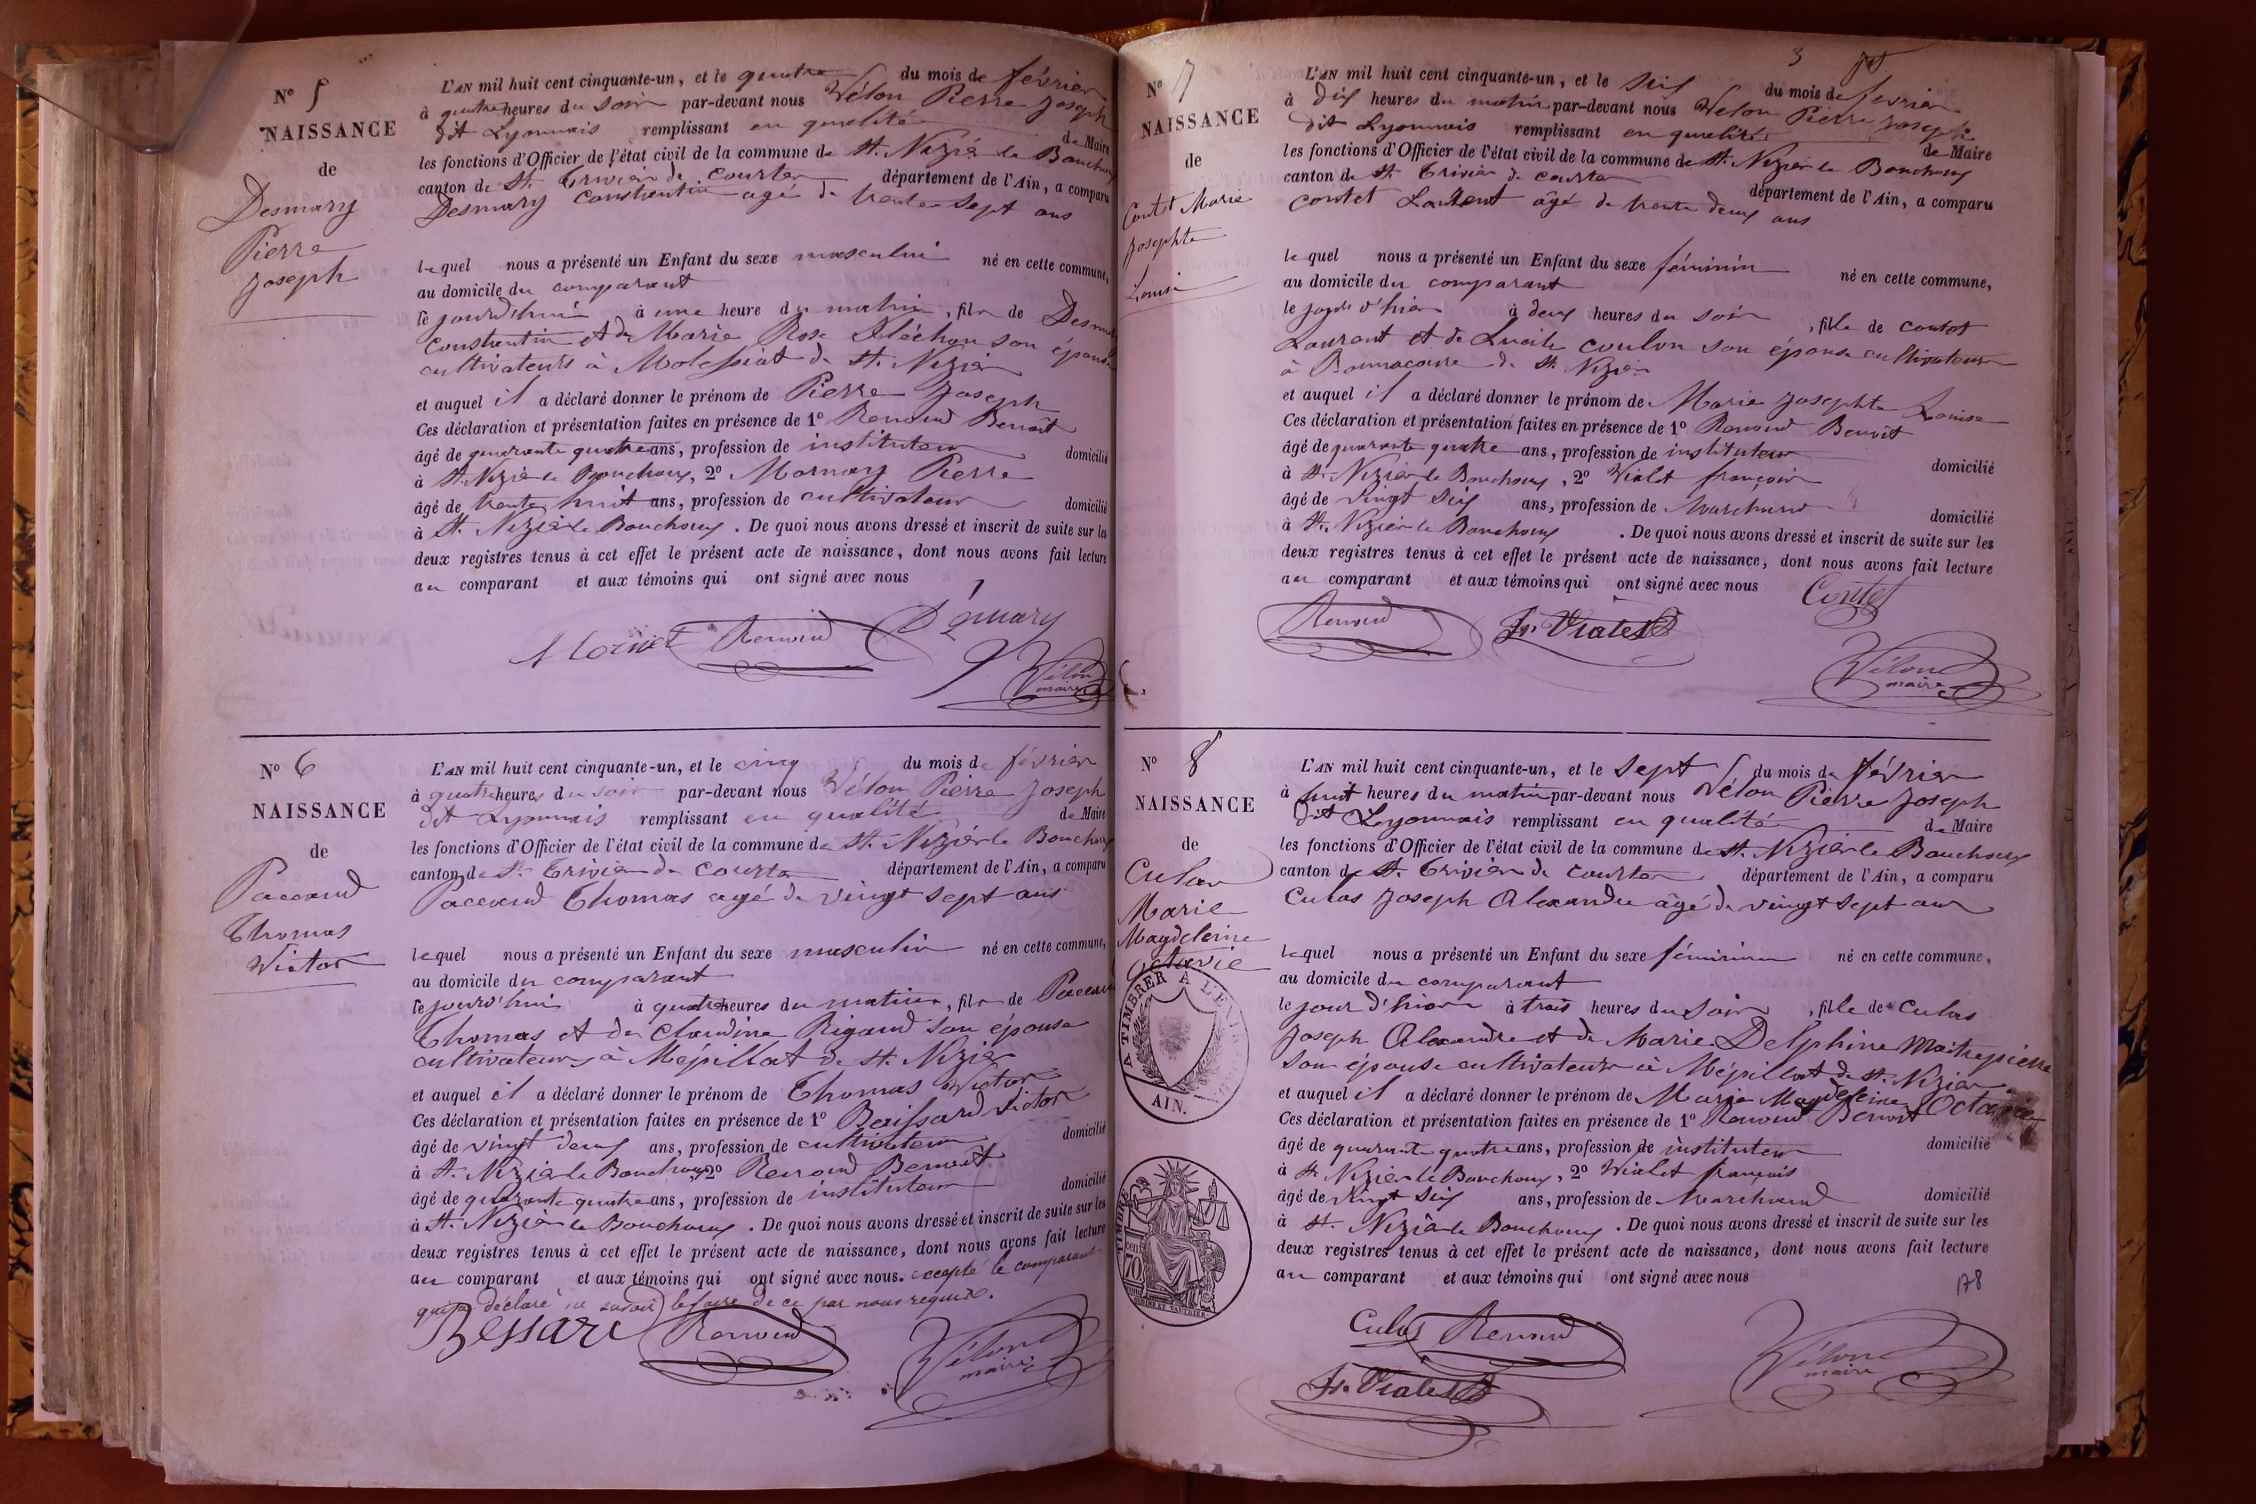 N° 5
NAISSANCE
de
Desmary
Pierre
Joseph
L'AN mil huit cent cinquante-un, et le quatre du mois de février
à quatre heures du soir par-devant nous Vélon Pierre Joseph
dit Lyonnais remplissant en qualité de Maire
les fonctions d'Officier de l'état civil de la commune de St. Nizier le Bouchoux
canton de St. Trivier de Courtes département de l'Ain, a comparu
Desmary Constantin agé de trente sept ans
lequel nous a présenté un Enfant du sexe masculin né en cette commune,
au domicile du comparant
le jourd'hui à une heure du matin, fils de
Constantin et de Marie Rose son épouse
cultivateurs à Molessiat de St. Nizier
et auquel il a déclaré donner le prénom de Pierre Joseph
Ces déclaration et présentation faites en présence de 1° Renoud Benoit
âgé de quarante quatre ans, profession de instituteur domicilié
à St. Nizier le Bouchoux, 2° Pierre
âgé de trente huit ans, profession de cultivateur domicilié
à St. Nizier le Bouchoux. De quoi nous avons dressé et inscrit de suite sur les
deux registres tenus à cet effet le présent acte de naissance, dont nous avons fait lecture
au comparant et aux témoins qui ont signé avec nous
Renoud Démary
Vélon
maire
N° 6
NAISSANCE
de
Paccoud
Thomas
Victor
L'AN mil huit cent cinquante-un, et le cinq du mois de février
à quatre heures du soir par-devant nous Vélon Pierre Joseph
dit Lyonnais remplissant en qualité de Maire
les fonctions d'Officier de l'état civil de la commune de St. Nizier le Bouchoux
canton de St. Trivier de Courtes département de l'Ain, a comparu
Paccoud Thomas agé de vingt sept ans
lequel nous a présenté un Enfant du sexe masculin né en cette commune,
au domicile du comparant
le jourd'hui à quatre heures du matin, fils de Paccoud
Thomas et de Claudine Rigaud son épouse
cultivateurs à Mépillat de St. Nizier
et auquel il a déclaré donner le prénom de Thomas Victor
Ces déclaration et présentation faites en présence de 1° Beissard Victor
âgé de vingt deux ans, profession de cultivateur domicilié
à St. Nizier le Bouchoux, 2° Renoud Benoit
âgé de quarante quatre ans, profession de instituteur domicilié
à St. Nizier le Bouchoux. De quoi nous avons dressé et inscrit de suite sur les
deux registres tenus à cet effet le présent acte de naissance, dont nous avons fait lecture
au comparant et aux témoins qui ont signé avec nous. excepté le comparant
qui a déclaré ne savoir le faire de ce par nous requis.
Bessard Renoud
Vélon
maire
3
N° 7
NAISSANCE
de
Contet Marie
Josephte
Louise
L'AN mil huit cent cinquante-un, et le six du mois de février
à dix heures du matin par-devant nous Vélon Pierre Joseph
dit Lyonnais remplissant en qualité de Maire
les fonctions d'Officier de l'état civil de la commune de St. Nizier le Bouchoux
canton de St. Trivier de Courtes département de l'Ain, a comparu
Contet Laurent âgé de trente deux ans
lequel nous a présenté un Enfant du sexe féminin né en cette commune,
au domicile du comparant
le jour d'hier à deux heures du soir, fille de Contet
Laurent et de Lucile Coulon son épouse cultivateurs
à de St. Nizier
et auquel il a déclaré donner le prénom de Marie Josephte Louise
Ces déclaration et présentation faites en présence de 1° Renoud Benoit
âgé de quarante quatre ans, profession de instituteur domicilié
à St. Nizier le Bouchoux, 2° Vialet françois
âgé de vingt six ans, profession de Marchand domicilié
à St. Nizier le Bouchoux. De quoi nous avons dressé et inscrit de suite sur les
deux registres tenus à cet effet le présent acte de naissance, dont nous avons fait lecture
au comparant et aux témoins qui ont signé avec nous Contet
Renoud fs. Vialet
Vélon
maire
N° 8
NAISSANCE
de
Culas
Marie
Magdeleine
Octavie
L'AN mil huit cent cinquante-un, et le sept du mois de février
à huit heures du matin par-devant nous Vélon Pierre Joseph
dit Lyonnais remplissant en qualité de Maire
les fonctions d'Officier de l'état civil de la commune de St. Nizier le Bouchoux
canton de St. Trivier de Courtes département de l'Ain, a comparu
Culas Joseph Alexandre âgé de vingt sept ans
lequel nous a présenté un Enfant du sexe féminin né en cette commune,
au domicile du comparant
le jour d'hier à trois heures du soir, fille de Culas
Joseph Alexandre et de Marie Delphine Maitrepierre
son épouse cultivateurs à Mépillat de St. Nizier
et auquel il a déclaré donner le prénom de Marie Magdeleine Octavie
Ces déclaration et présentation faites en présence de 1° Renoud Benoit
âgé de quarante quatre ans, profession de instituteur domicilié
à St. Nizier le Bouchoux, 2° Vialet françois
âgé de vingt six ans, profession de Marchand domicilié
à St. Nizier le Bouchoux. De quoi nous avons dressé et inscrit de suite sur les
deux registres tenus à cet effet le présent acte de naissance, dont nous avons fait lecture
au comparant et aux témoins qui ont signé avec nous
178
Culas Renoud
fs. Vialet
Vélon
maire
A TIMBRER A L'EXTRAORD.
AIN.
TIMBRE
70